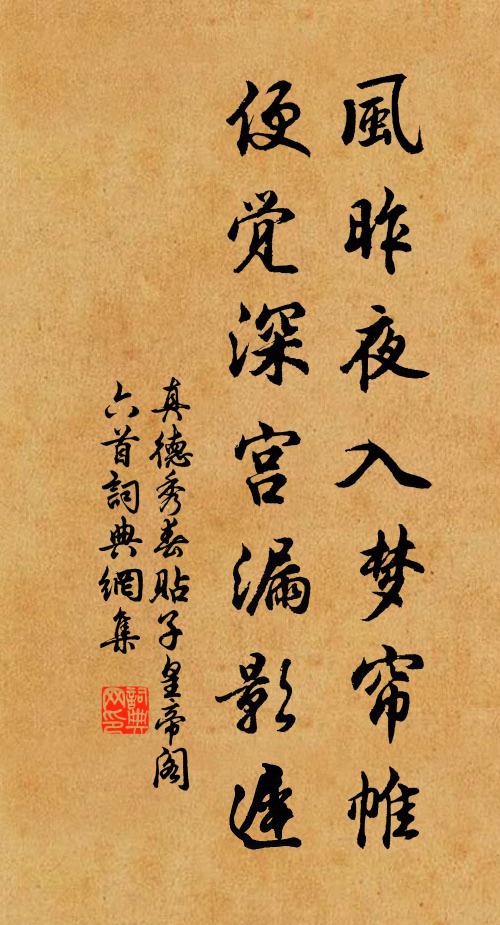 風昨夜入梦帘帷
便觉深宫漏影遲
真德秀春贴子皇帝阁
六首詞典網集
詞典网印